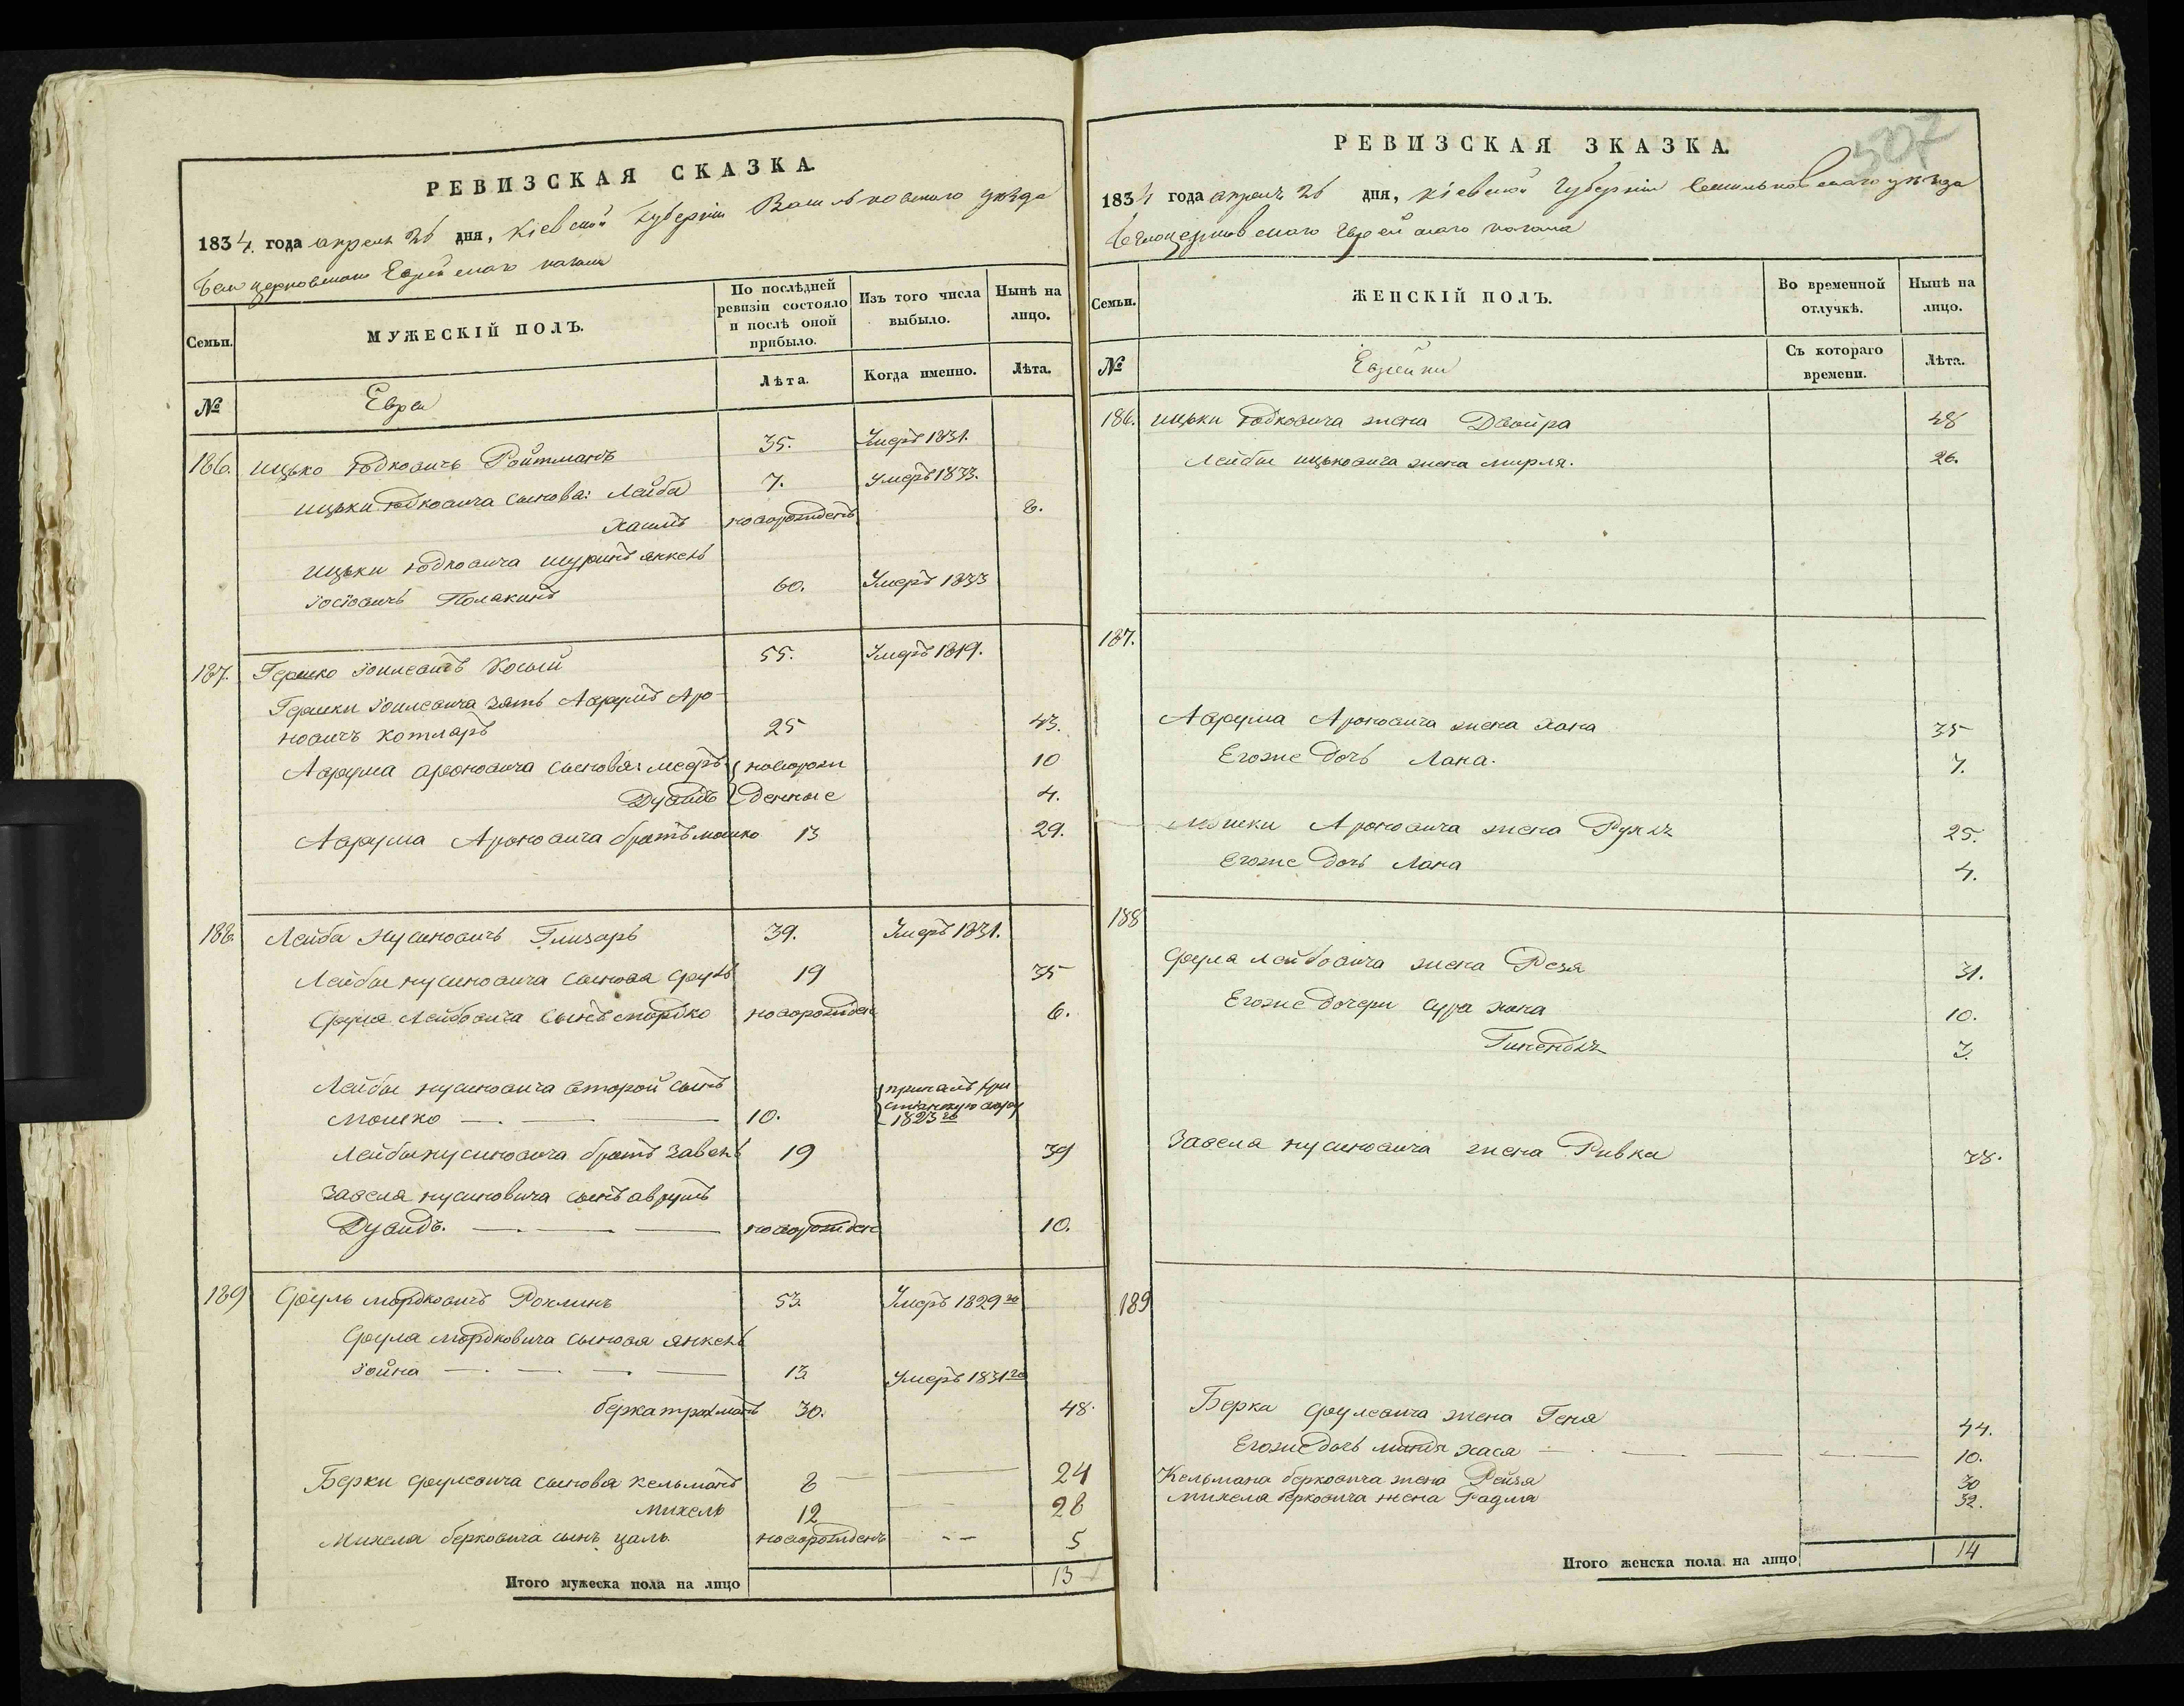 РЕВИЗСКАЯ СКАЗКА.
1834. года апреля 26 дня, Кіевской Губерніи Васильковскаго уѣзда
Белоцерковскаго Еврейскаго кагала
Семьи.
МУЖЕСКІЙ ПОЛЪ.
По послѣдней ревизіи состояло и послѣ оной прибыло.
Изъ того числа выбыло.
Нынѣ на лицо.
№
Евреи
Лѣта.
Когда именно.
Лѣта.
186. Ицько Юдковичъ Ройтманъ 35. Умеръ 1831.
Ицьки Юдковича сыновя: Лейба 7. Умеръ 1833.
Хаимъ новорожденъ 8.
Ицьки Юдковича шуринъ Янкель
Іосіовичъ Полакинъ 60. Умеръ 1833
187. Гершко Іоилевичъ Косый 55. Умеръ 1819.
Гершки Іоилевича зять Аврумъ Аро-
новичъ Котляръ 25 43.
Аврума Ароновича сыновя: Меиръ новорож 10
Дувидъ денные 4.
Аврума Ароновича братъ Мошко 13 29.
188. Лейба Нусиновичъ Глизаръ 39. Умеръ 1831.
Лейбы Нусиновича сыновя Сруль 19 35
Срула Лейбовича сынъ Мордко новорожден 6.
Лейбы Нусиновича второй сынъ
Мошко 10. принялъ хри
стианскую веру
1823 го
Лейбы Нусиновича братъ Завель 19 39
Завеля Нусиновича сынъ Аврумъ
Дувидъ. новорожден 10.
189 Сруль Мордковичъ Рохлинъ 53. Умеръ 1829 го
Срула Мордковича сыновя Янкель
Іойна 13 Умеръ 1831 го
Берка 30. 48.
Берки Срулевича сыновя Кельманъ 8 24
Михель 12 28
Михеля Берковича сынъ Цаль. новорожденъ 5
Итого мужеска пола на лицо 13
307
РЕВИЗСКАЯ ЗКАЗКА.
1834 года апреля 26 дня, Кіевской Губерніи Васильковскаго уѣзда
Белоцерковскаго Еврейскаго кагала
Семьи.
ЖЕНСКІЙ ПОЛЪ.
Во временной отлучкѣ.
Нынѣ на лицо.
№
Еврейки
Съ котораго времени.
Лѣта.
186. Ицьки Юдковича жена Двойра 48
Лейбы Ицьковича жена Мирля. 26.
187.
Аврума Ароновича жена Хана 35
Егоже дочь Лана. 7.
Мошки Ароновича жена Рухля 25.
Егоже дочь Лана 4.
188
Срула Лейбовича жена Рези 31.
Егоже дочери Сура Хана 10.
Гинендля 3.
Завеля Нусиновича жена Ривка 38.
189
Берка Срулевича жена Геня 44.
Егоже дочь Миндя Хася 10.
Кельмана Берковича жена Рейзя 30
Михеля Берковича жена Фадмя 32.
Итого женска пола на лицо 14